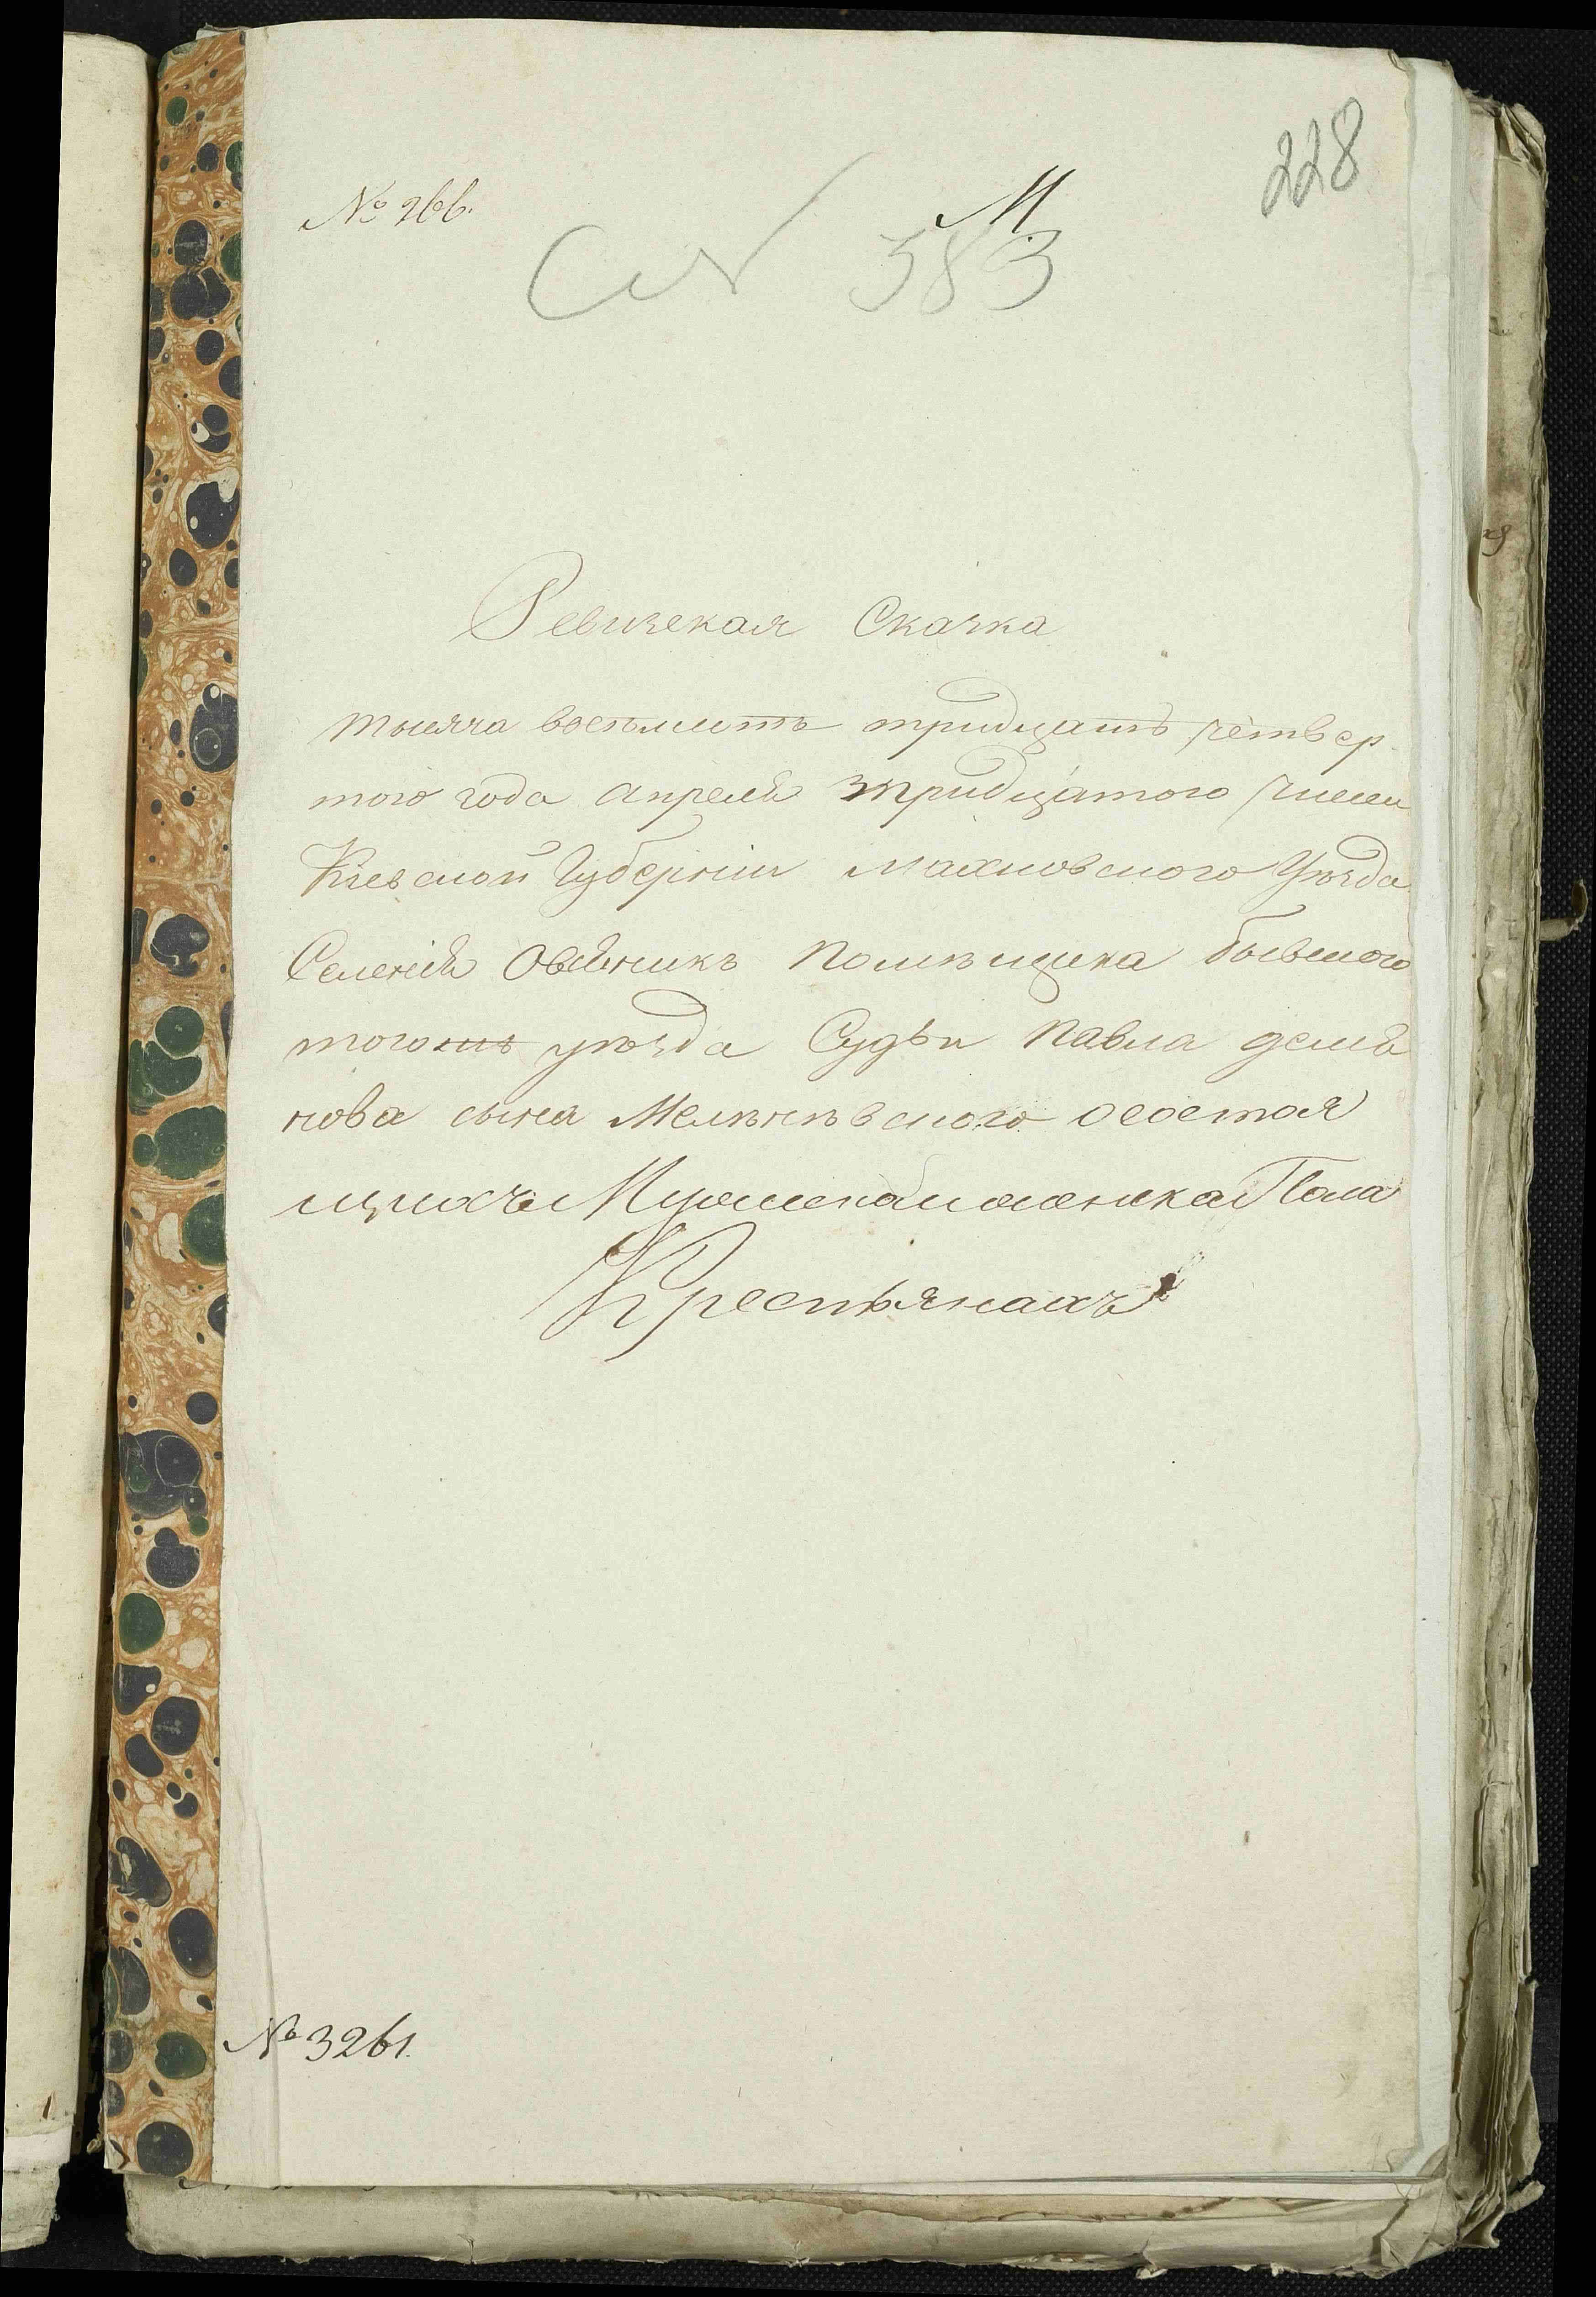 228
№ 266.
М
583
Ревизская Сказка
тысяча восемьсотъ тридцать четвер
того года апреля тридцатого числа
Кіевской Губерніи Махновского Уѣзда
Селенія Овсяникъ Помѣщика бывшого
тогожъ уѣзда Судьи Павла демья
нова сына Мельнѣвского осостоя
щихъ Мужеска и женска Пола
Крестьянахъ
№ 3261.